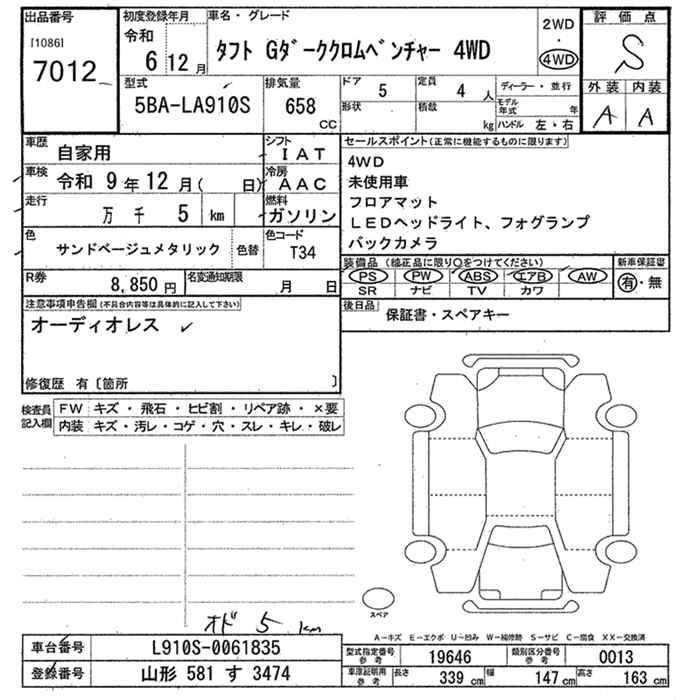 出品番号
[1086]
7012
初度登録年月
令和
6年12月
車名・グレード
タフト Gダーククロムベンチャー 4WD
2WD
・
4WD
評価点
S
外装 内装
A A
型式
5BA-LA910S
排気量
658
CC
ドア
5
形状
定員
4人
積載
kg
ディーラー・並行
モデル年式 年
ハンドル 左・右
車歴
自家用
シフト
IAT
車検
令和 9年12月( 日)
冷房
AAC
走行
万 千 5 km
燃料
ガソリン
色
サンドベージュメタリック
色替
色コード
T34
R券
8,850円
名変通知期限
月 日
セールスポイント(正常に機能するものに限ります)
4WD
未使用車
フロアマット
LEDヘッドライト、フォグランプ
バックカメラ
装備品(純正品に限り○をつけてください)
PS PW ABS エアB AW
SR ナビ TV カワ
新車保証書
有・無
後日品
保証書・スペアキー
注意事項申告欄(不具合内容等は具体的に記入して下さい)
オーディオレス
修復歴 有〔箇所 〕
検査員記入欄
FW キズ・飛石・ヒビ割・リペア跡・×要
内装 キズ・汚レ・コゲ・穴・スレ・キレ・破レ
オド 5 km
スペア
A−キズ E−エクボ U−凹み W−補修跡 S−サビ C−腐食 XX−交換済
車台番号
L910S-0061835
登録番号
山形 581 す 3474
型式指定番号参考
19646
類別区分番号参考
0013
車庫証明用参考
長さ 339cm
幅 147cm
高さ 163cm